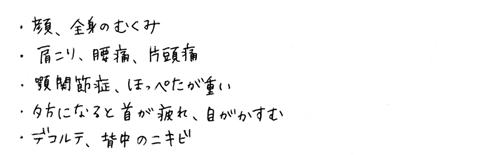 ・顔、全身のむくみ
・肩こり、腰痛、片頭痛
・顎関節症、ほっぺたが重い
・夕方になると首が疲れ、目がかすむ
・デコルテ、背中のニキビ